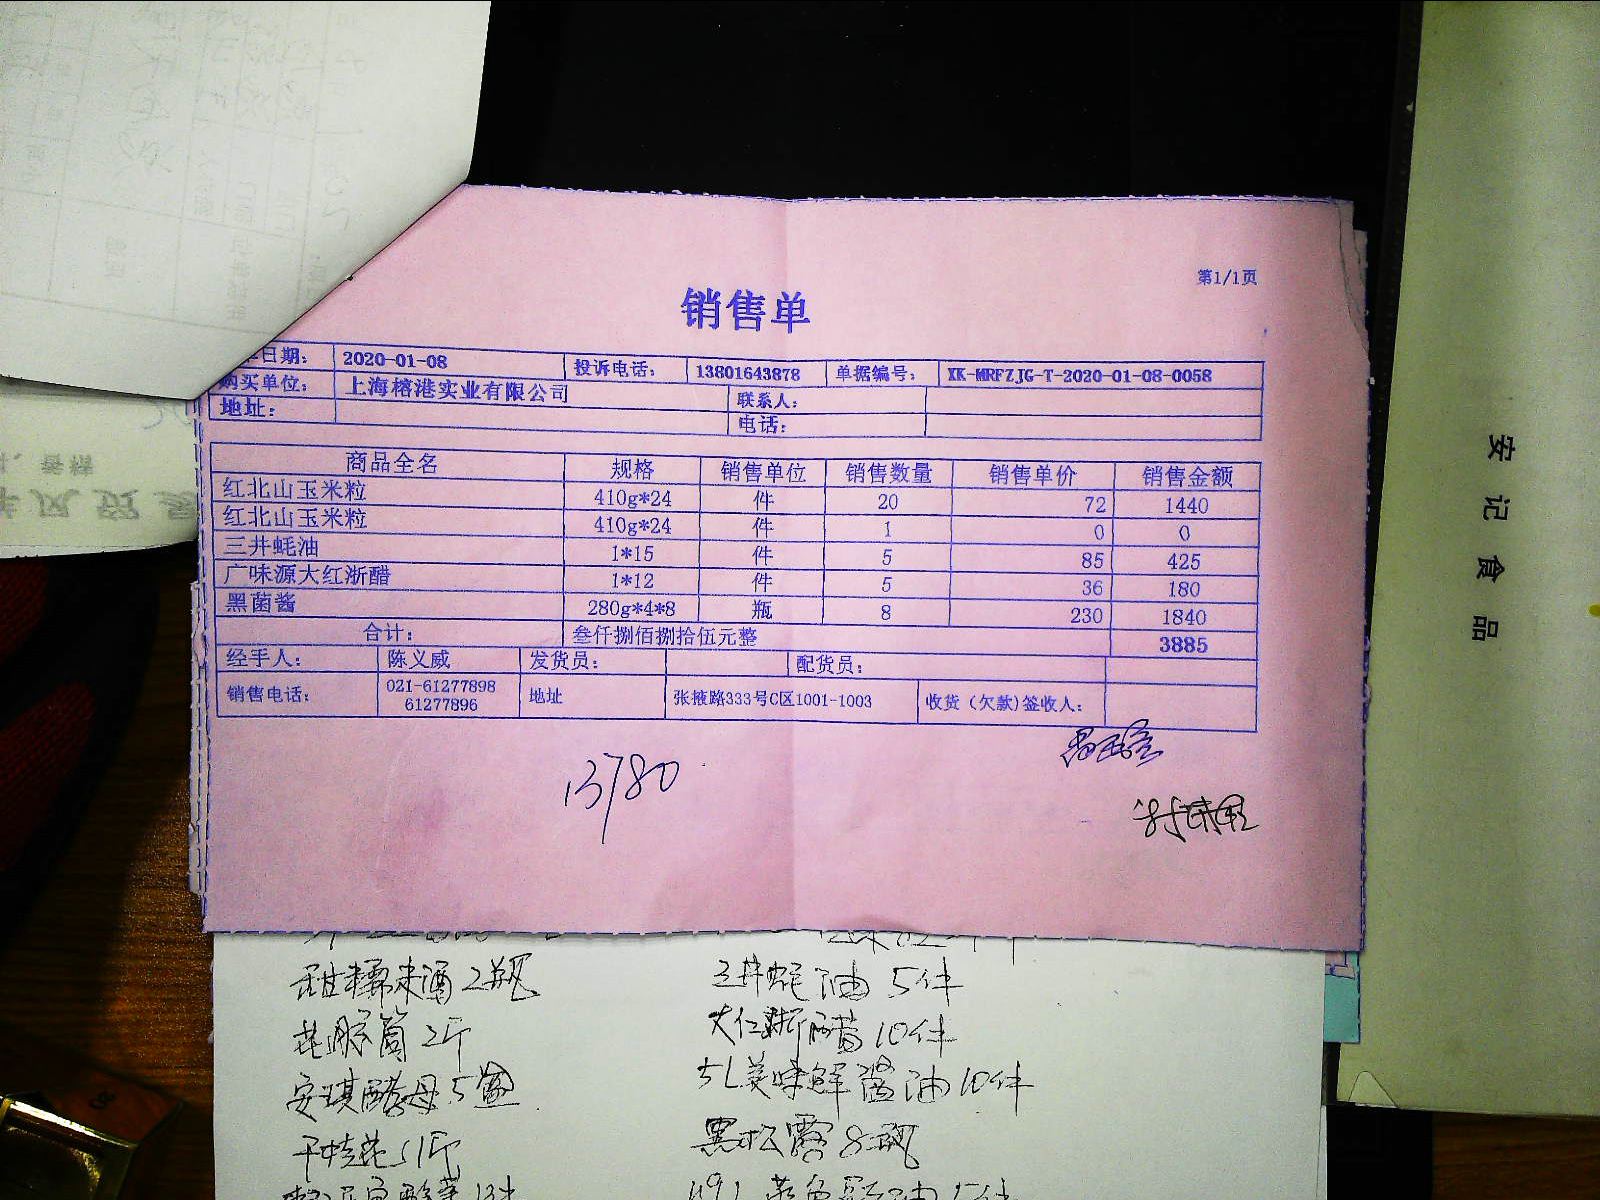 第1/1页
销售单
日期： 2020-01-08 投诉电话： 13801643878 单据编号： XK-MRFZJG-T-2020-01-08-0058
购买单位： 上海榕港实业有限公司 联系人：
地址： 电话：
商品全名 规格 销售单位 销售数量 销售单价 销售金额
红北山玉米粒 410g*24 件 20 72 1440
红北山玉米粒 410g*24 件 1 0 0
三井蚝油 1*15 件 5 85 425
广味源大红浙醋 1*12 件 5 36 180
黑菌酱 280g*4*8 瓶 8 230 1840
合计： 叁仟捌佰捌拾伍元整 3885
经手人： 陈义威 发货员： 配货员：
销售电话： 021-61277898 61277896 地址 张掖路333号C区1001-1003 收货（欠款)签收人：
13780
甜糯米酒2瓶 三井蚝油 5件
花胶筒2斤 大红浙醋10件
安琪酵母5盒 美味鲜酱油10件
干桂花1斤 黑松露8瓶
安记食品